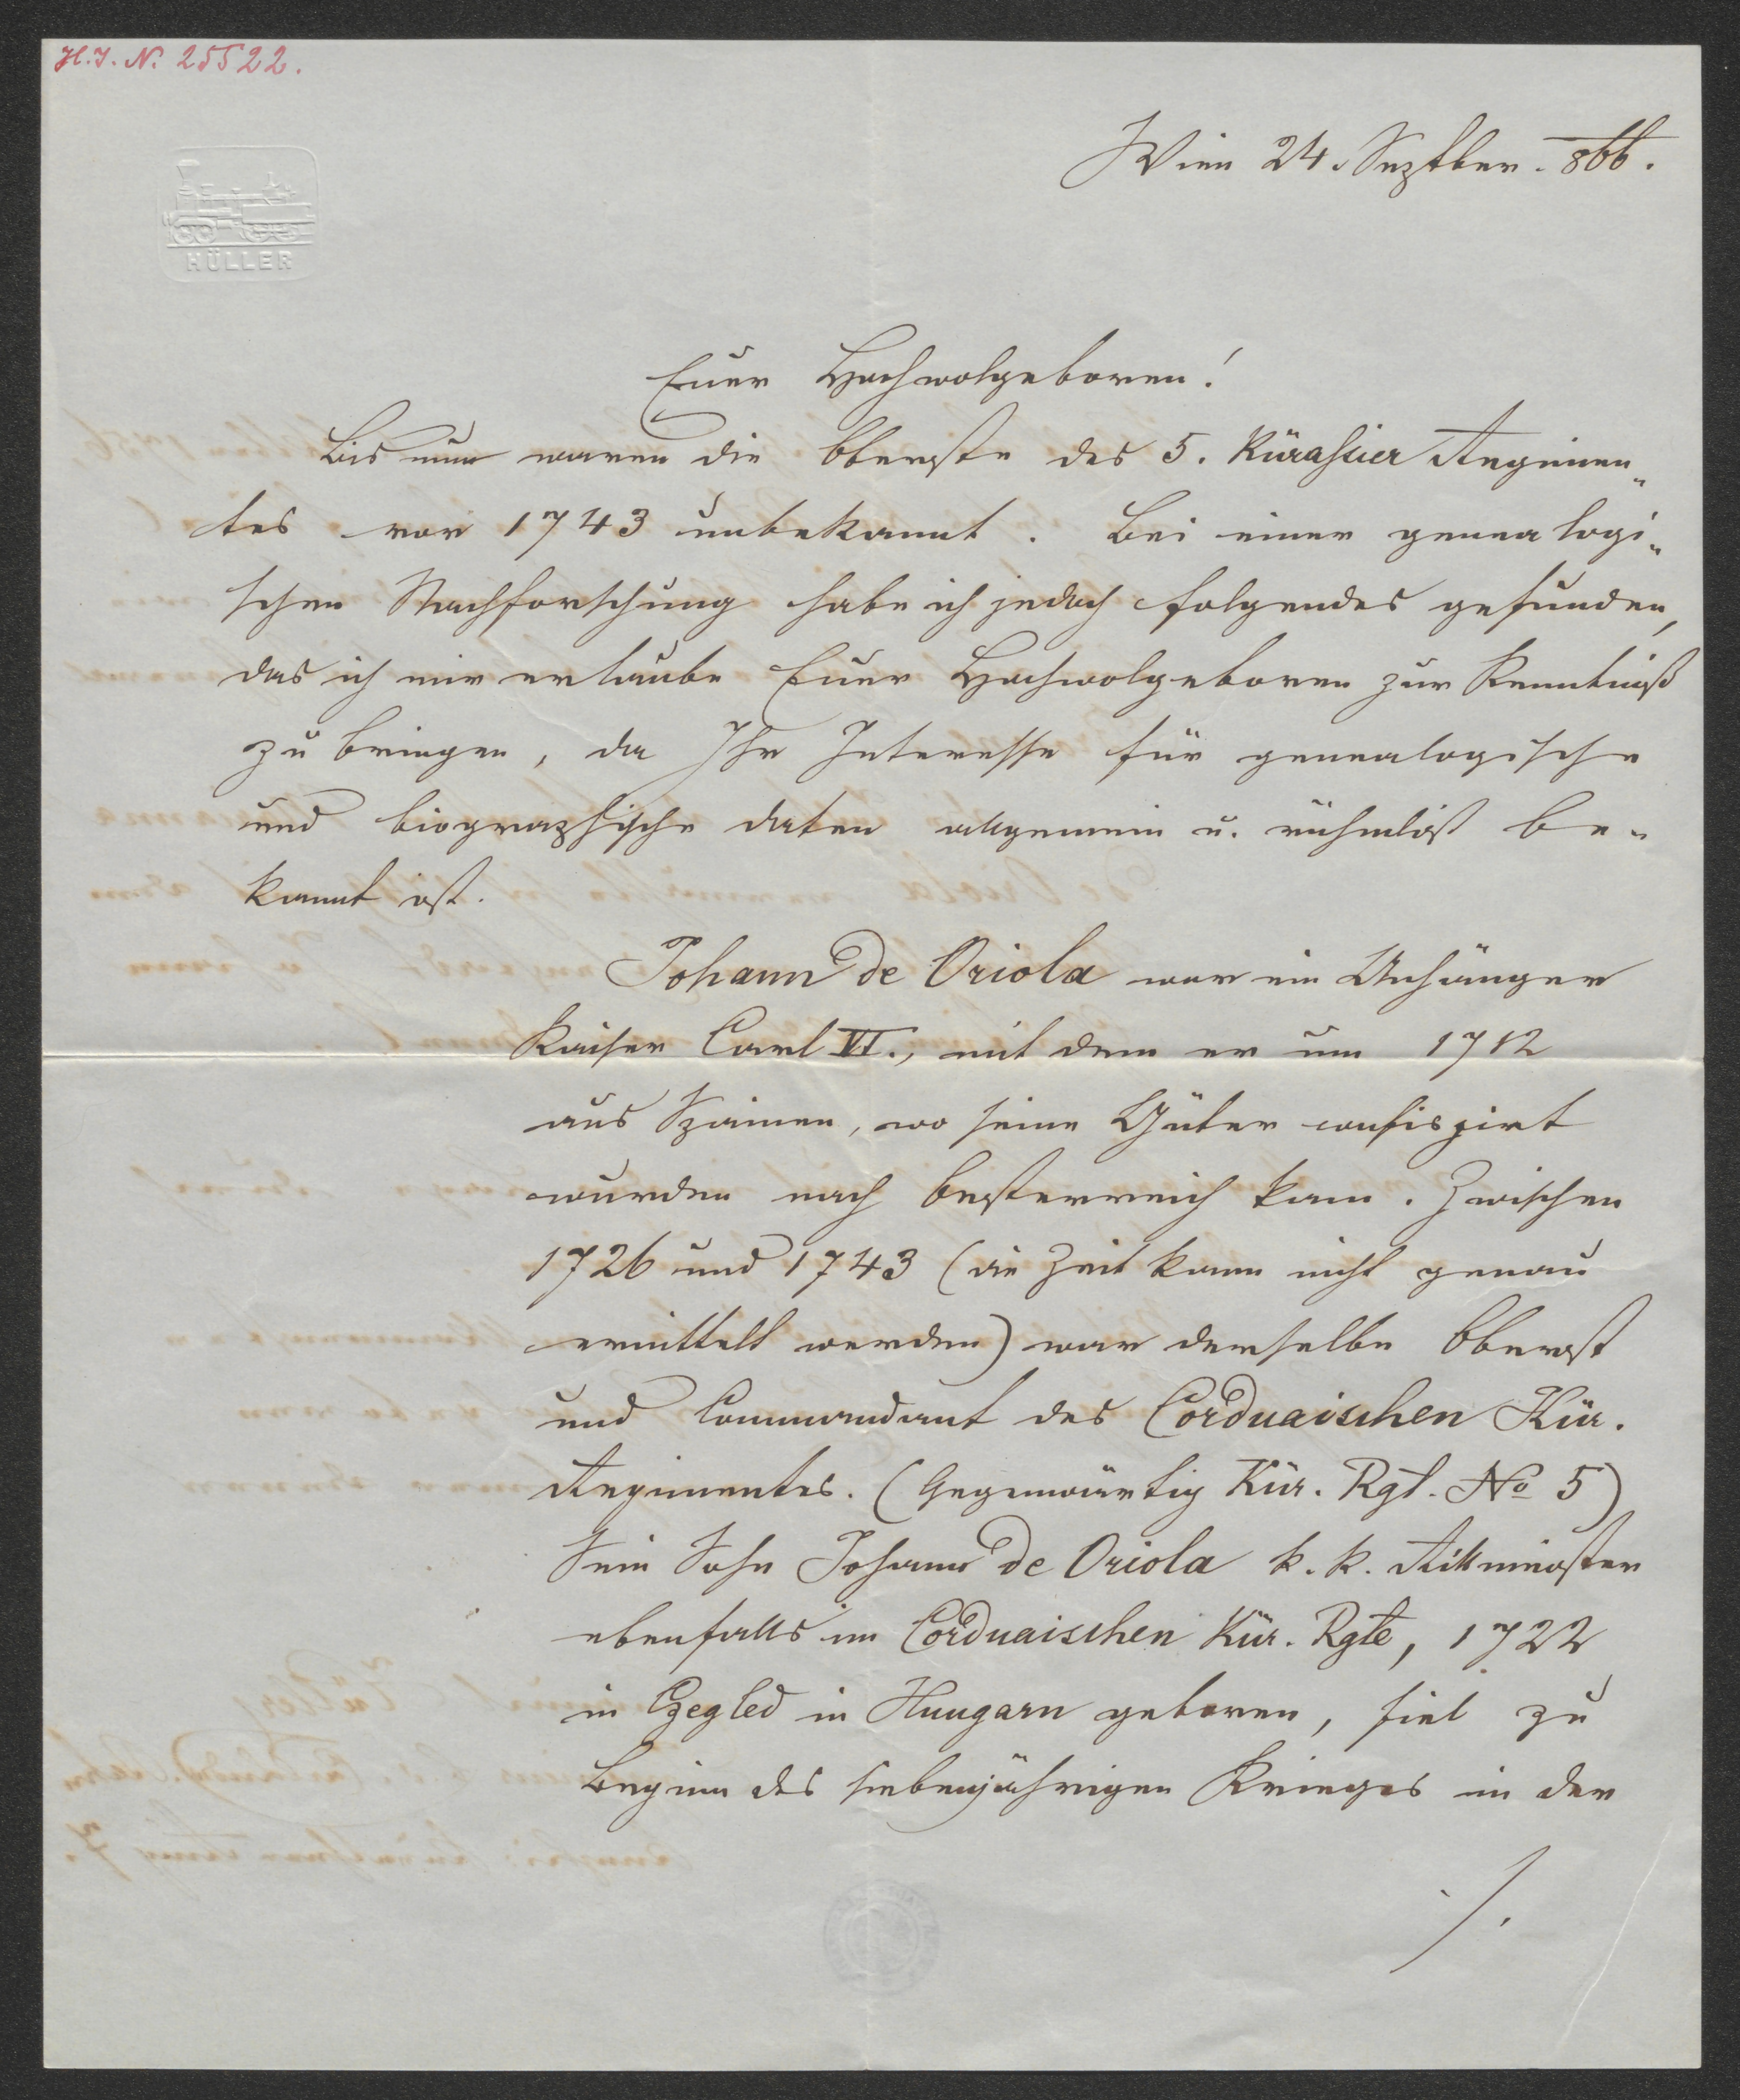 H. I. N. 25522.
HÜLLER
Wien 24. Septber. 866.
Euer Hochwolgeboren!
Bis nun waren die Oberste des 5. Kürassier Regimen„
tes vor 1743 unbekannt. Bei einer genealogi„
schen Nachforschung habe ich jedoch folgendes gefunden,
das ich mir erlaube Euer Hochwolgeboren zur Kenntniß
zu bringen, da Ihr Interesse für genealogische
und biographische Daten allgemein u. rühmlist be„
kannt ist.
Johann de Oriola war ein Anhänger
Kaiser Carl VI., mit dem er um 1712
aus Spanien, wo seine Güter confiszirt
wurden nach Oesterreich kam. Zwischen
1726 und 1743 (die Zeit kann nicht genau
ermittelt werden) war derselbe Oberst
und Commandant des Corduaischen Kür.
Regimentes. (Gegenwärtig Kür. Rgt. No 5)
Sein Sohn Johann de Oriola k. k. Rittmeister
ebenfalls im Corduaischen Kür. Rgte, 1722
in Czegled in Hungarn geboren, fiel zu
Beginn des siebenjährigen Krieges in der
./.